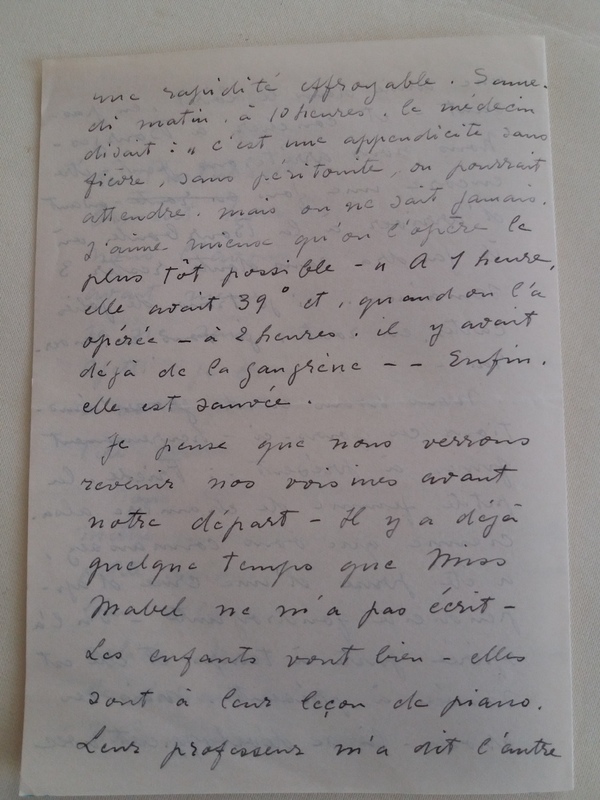 une rapidité effroyable. Same-
di matin. à 10 heures. le médecin
disait : " c'est une appendicite sans
fièvre, sans péritonite, on pourrait
attendre. mais on ne sait jamais.
J'aime mieux qu'on l'opère le
plus tôt possible - " A 1 heure,
elle avait 39° et, quand on l'a
opérée - à 2 heures. il y avait
déjà de la gangrène - - Enfin.
elle est sauvée.
Je pense que nous verrons
revenir nos voisines avant
notre départ - Il y a déjà
quelque temps que Miss
Mabel ne m'a pas écrit -
Les enfants vont bien - elles
sont à leur leçon de piano.
Leur professeur m'a dit l'autre